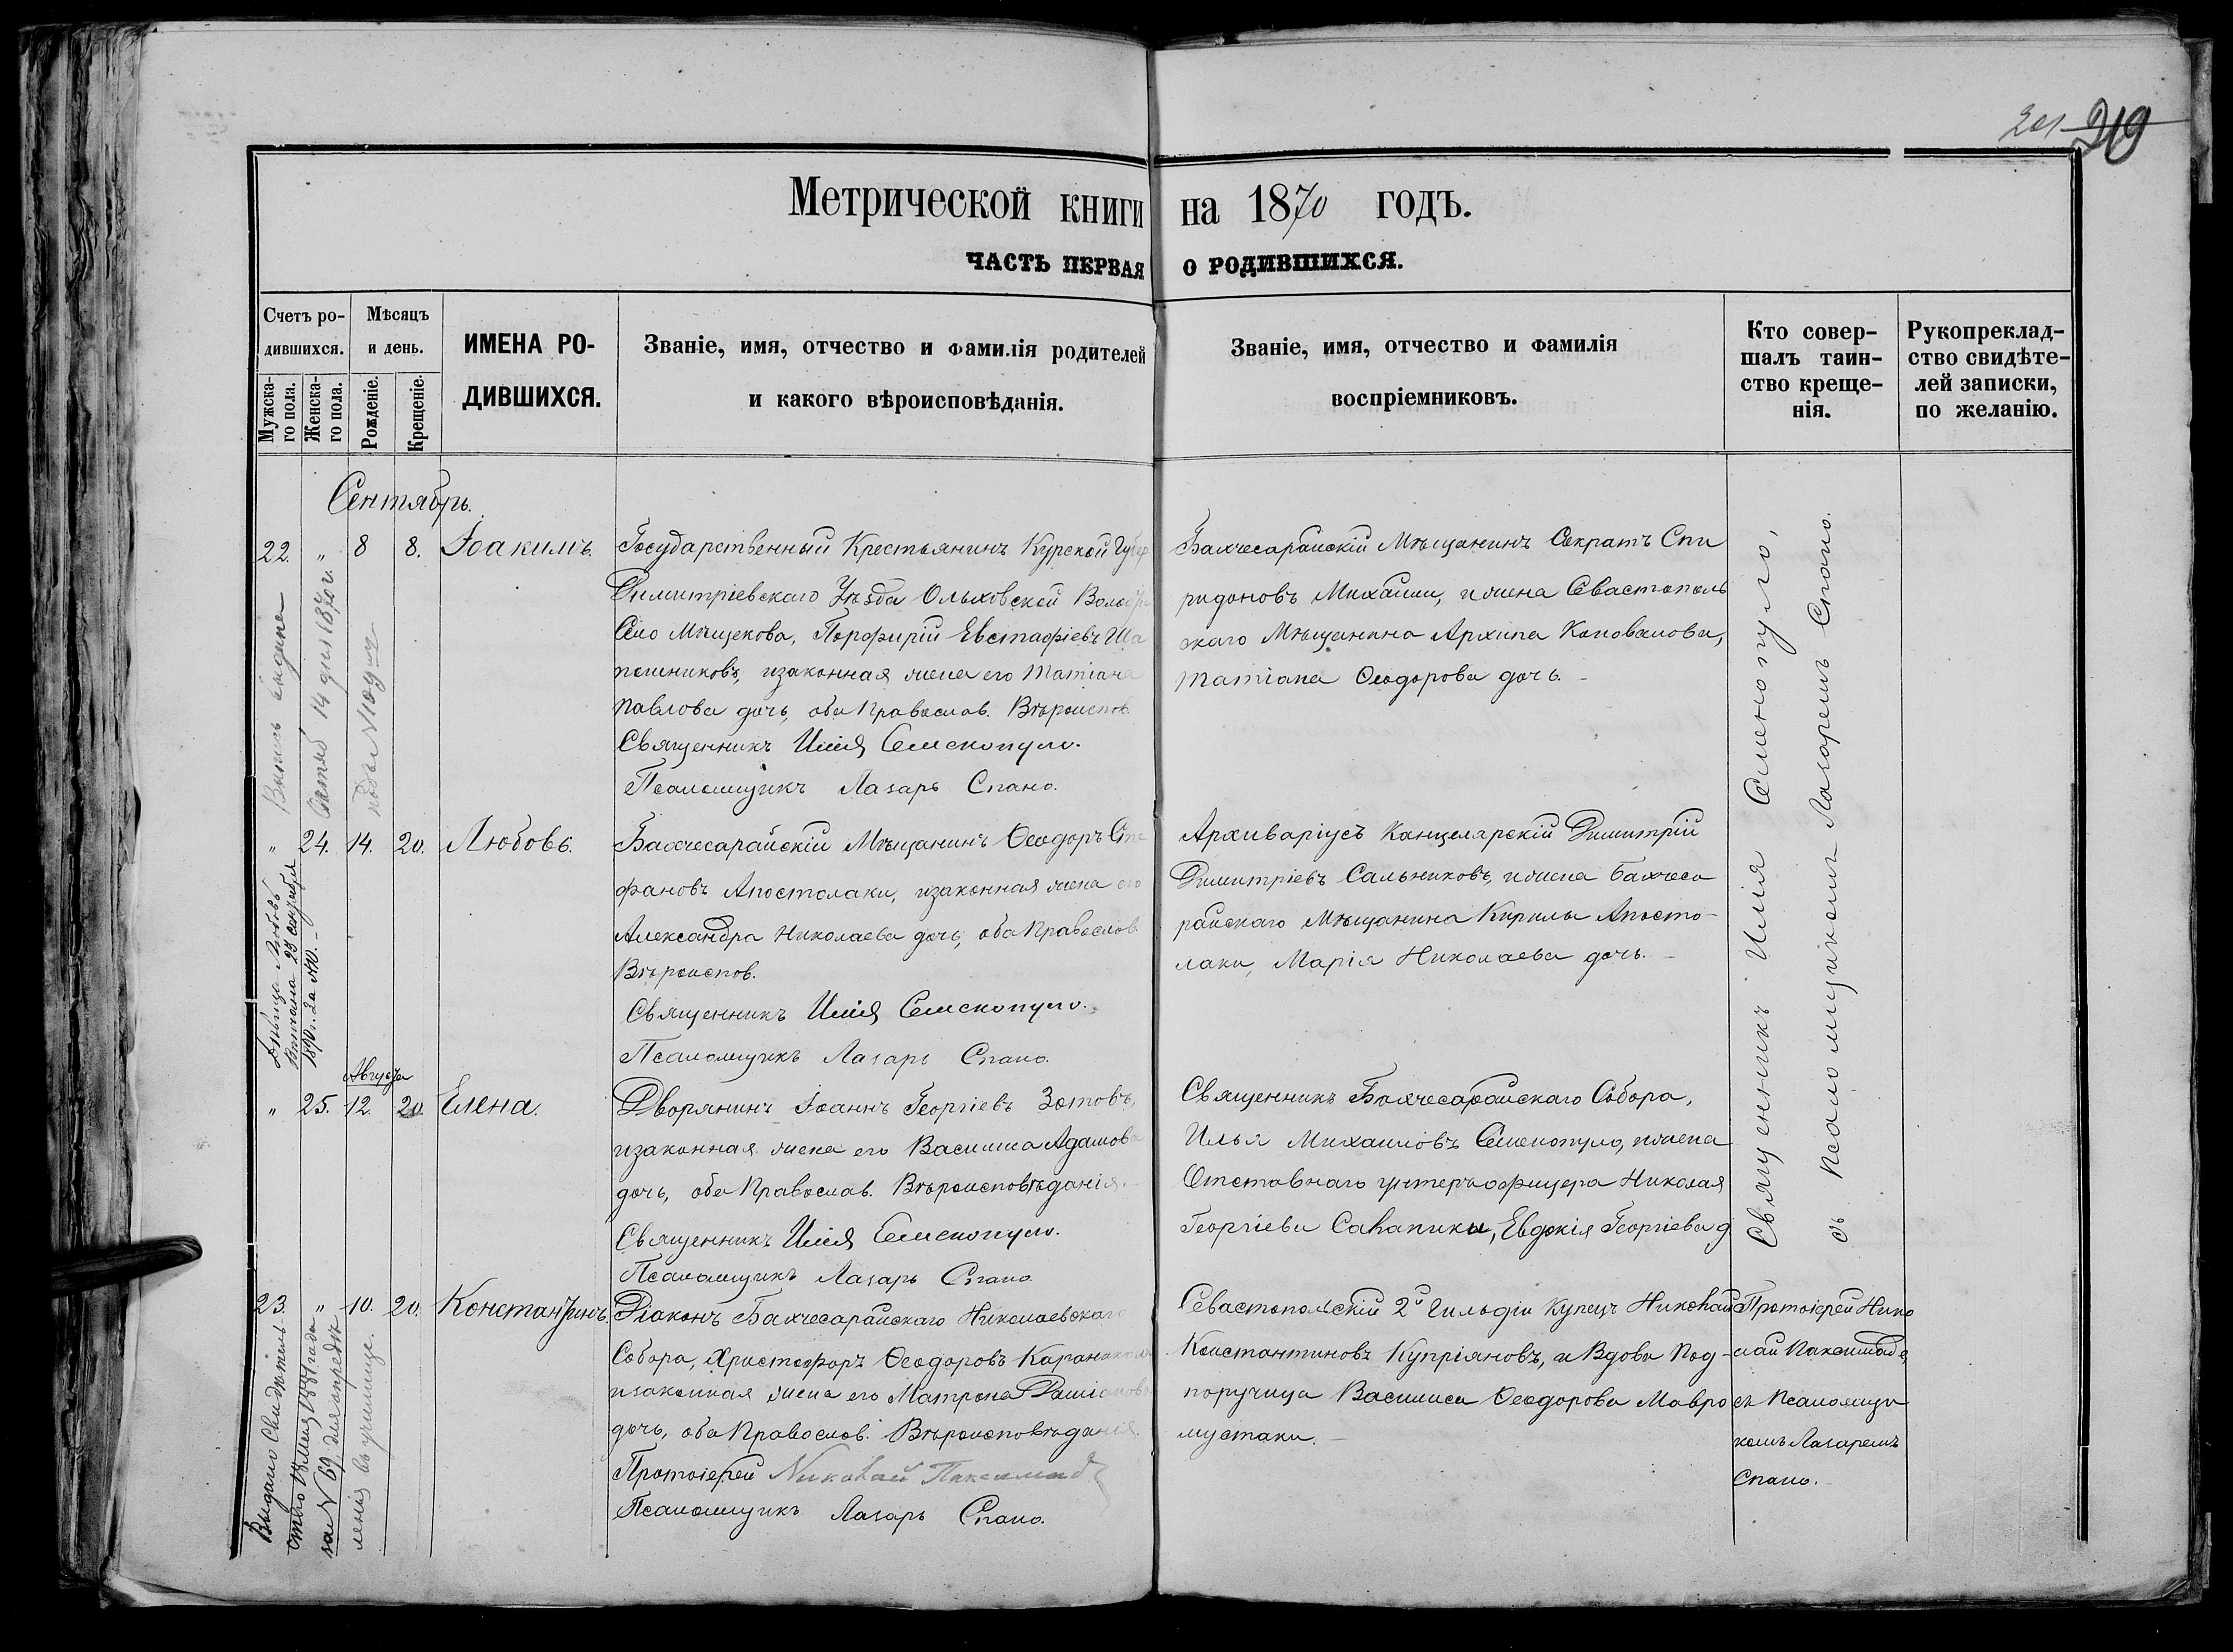 201 219
Метрической книги на 1870 годъ.
ЧАСТЬ ПЕРВАЯ О РОДИВШИХСЯ.
Счетъ ро-
дившихся.
Мужска-
го пола.
Женска-
го пола.
Мѣсяцъ
и день.
Рожденіе.
Крещеніе.
ИМЕНА РО-
ДИВШИХСЯ.
Званіе, имя, отчество и фамилія родителей
и какого вѣроисповѣданія.
Званіе, имя, отчество и фамилія
воспріемниковъ.
Кто совер-
шалъ таин-
ство креще-
нія.
Рукопреклад-
ство свидѣте-
лей записки,
по желанію.
Сентябрь.
22. " 8 8. Іоакимъ.
Государственный Крестьянинъ Курской Губер
Димитріевскаго Уѣзда Ольховской Волос
Село Мѣщекова, Порфирій Евстафіевъ Ша
пошниковъ, изаконная жена его Татіана
Павлова дочь, оба Православ. Вѣроиспов.
Священникъ Илія Семенопуло.
Псаломщикъ Лазарь Спано.
Бахчесарайскій Мѣщанинъ Сократъ Спи
ридоновъ Михайли, и жена Севастополь
скаго Мѣщанина Архипа Коновалова,
Татіана Ѳеодорова дочь. -
Выпись выдана
Октяб 14 дня 1870 г.
подъ N
" 24. 14. 20. Любовь.
Бахчесарайскій Мѣщанинъ Ѳеодоръ Сте
фановъ Апостолаки, изаконная жена его
Александра Николаева дочь, оба Православ
Вѣроиспов.
Священникъ Илія Семенопуло.
Псаломщикъ Лазарь Спано.
Архиваріусъ Канцелярскій Димитрій
Димитріевъ Сальниковъ, и жена Бахчеса
райскаго Мѣщанина Кирилы Апосто-
лаки, Марія Николаева дочь. -
Любовь
25 сентября
1890 г. за №
" 25. Августа 12. 20. Елена.
Дворянинъ Іоаннъ Георгіевъ Зотовъ,
изаконная жена его Василиса Адамова
дочь, оба Православ. Вѣроисповѣданія.
Священникъ Илія Семенопуло.
Псаломщикъ Лазарь Спано.
Священникъ Бахчесарайскаго Собора,
Илья Михаиловъ Семенопуло, и жена
Отставнаго унтеръофицера Николая
Георгіева Саһапики, Евдокія Георгіева д
Священникъ Илія Семенопуло,
съ Псаломщикомъ Лазаремъ Спано.
23. " 10. 20. Константинъ.
Діаконъ Бахчесарайскаго Николаевскаго
Собора, Христофоръ Ѳеодоровъ
изаконная жена его Матрона Даміанова
дочь, оба Православ. Вѣроисповѣданія.
Протоіерей Николай Паксимад
Псаломщикъ Лазарь Спано.
Севастопольскій 2й Гильдіи Купецъ Николай
Константиновъ Купріяновъ, и Вдова Под-
поручица Василиса Ѳеодорова Мавро
мустаки. -
Протоіерей Нико
лай Паксимаде,
съ Псаломщи
комъ Лазаремъ
Спано.
Выдано Свидѣтель-
ство 18 Мая 1881 года
за N 69 для опредѣ
ленія въ училище.